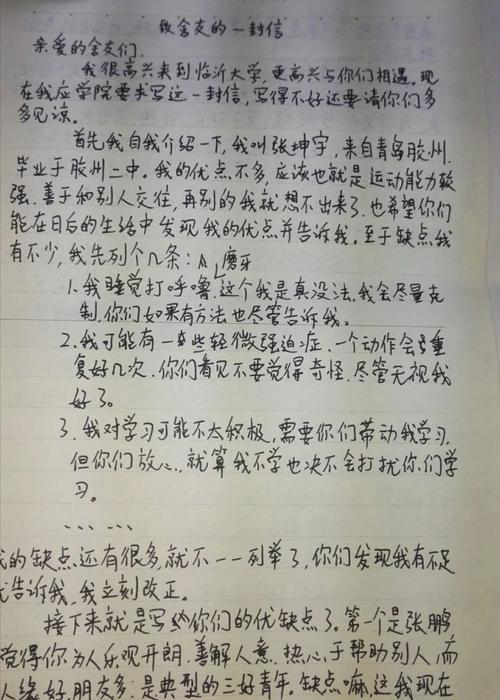 致舍友的一封信
亲爱的舍友们.
我很高兴来到临沂大学,更高兴与你们相遇.现
在我应学院要求写这一封信,写得不好还要请你们多
多见谅.
首先我自我介绍一下,我叫张坤宇,来自青岛胶州.
毕业于胶州二中。我的优点不多,应该也就是运动能力较
强.善于和别人交往,再别的我就想不出来了.也希望你们
能在日后的生活中发现我的优点并告诉我。至于缺点我
有不少,我先列个几条:
磨牙
1.我睡觉打呼噜.这个我是真没法,我会尽量克
制.你们如果有方法也尽管告诉我。
2.我可能有一些轻微强迫症.一个动作会重
复好几次.你们看见不要觉得奇怪.尽管无视我
好了。
3.我对学习可能不太积极,需要你们带动我学习.
但你们放心,就算我不学也决不会打扰你们学
习。
……
我的缺点还有很多,就不一一列举了,你们发现我有不足
告诉我,我立刻改正。
接下来就是写给你们的优缺点了。第一个是张鹏
觉得你为人乐观开朗.善解人意.热心于帮助别人,而
人缘好.朋友多;是典型的三好青年。缺点嘛,这我现在